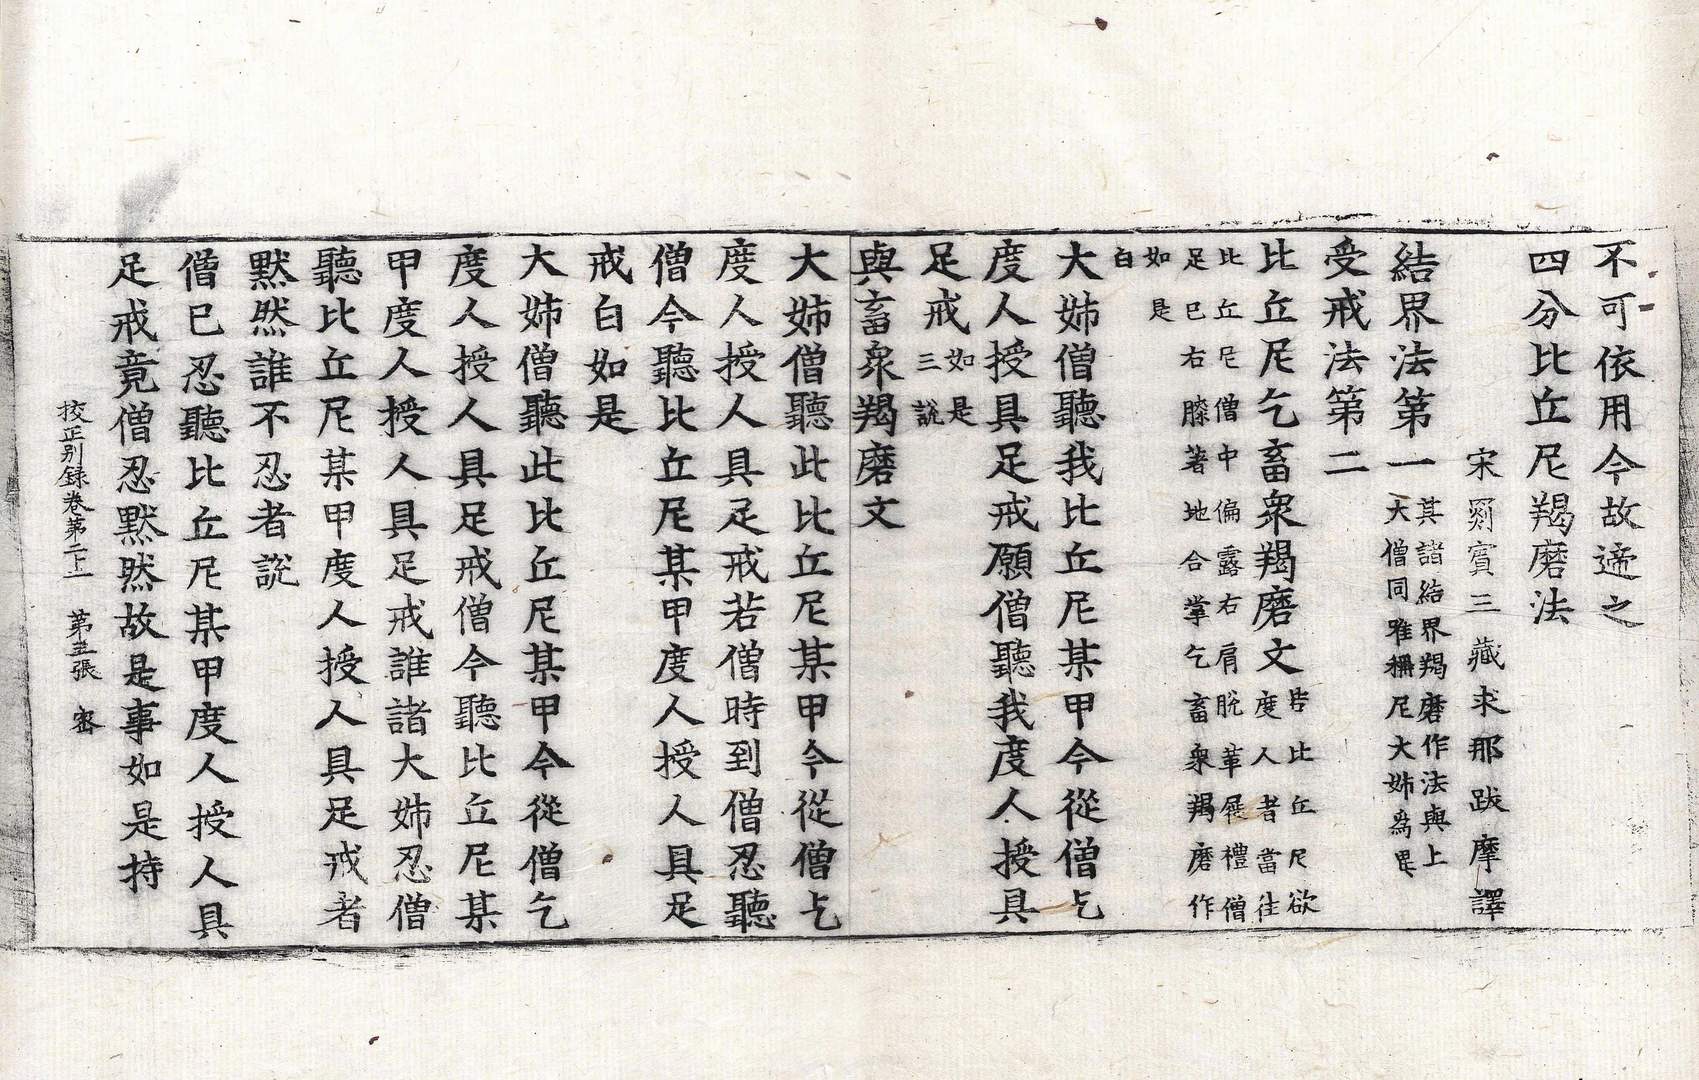 不可依用今故遆之
四分比丘尼羯磨法
宋罽賓三藏求那跋摩譯
結界法第一其諸結界羯磨作法與上
大僧同唯稱尼大姉爲異
受戒法第二
比丘尼乞畜衆羯磨文皆比丘尼欲
度人者當往
比丘尼僧中偏露右肩脫革屣禮僧
足已右膝著地合掌乞畜衆羯磨作
如是
白
大姉僧聽我比丘尼某甲今從僧乞
度人授具足戒願僧聽我度人授具
足戒如是
三說
與畜衆羯磨文
大姉僧聽此比丘尼某甲今從僧乞
度人授人具足戒若僧時到僧忍聽
僧今聽比丘尼某甲度人授人具足
戒白如是
大姉僧聽此比丘尼某甲今從僧乞
度人授人具足戒僧今聽比丘尼某
甲度人授人具足戒誰諸大姉忍僧
聽比丘尼某甲度人授人具足戒者
默然誰不忍者說
僧已忍聽比丘尼某甲度人授人具
足戒竟僧忍默然故是事如是持
挍正別録卷第二上 第五張 密